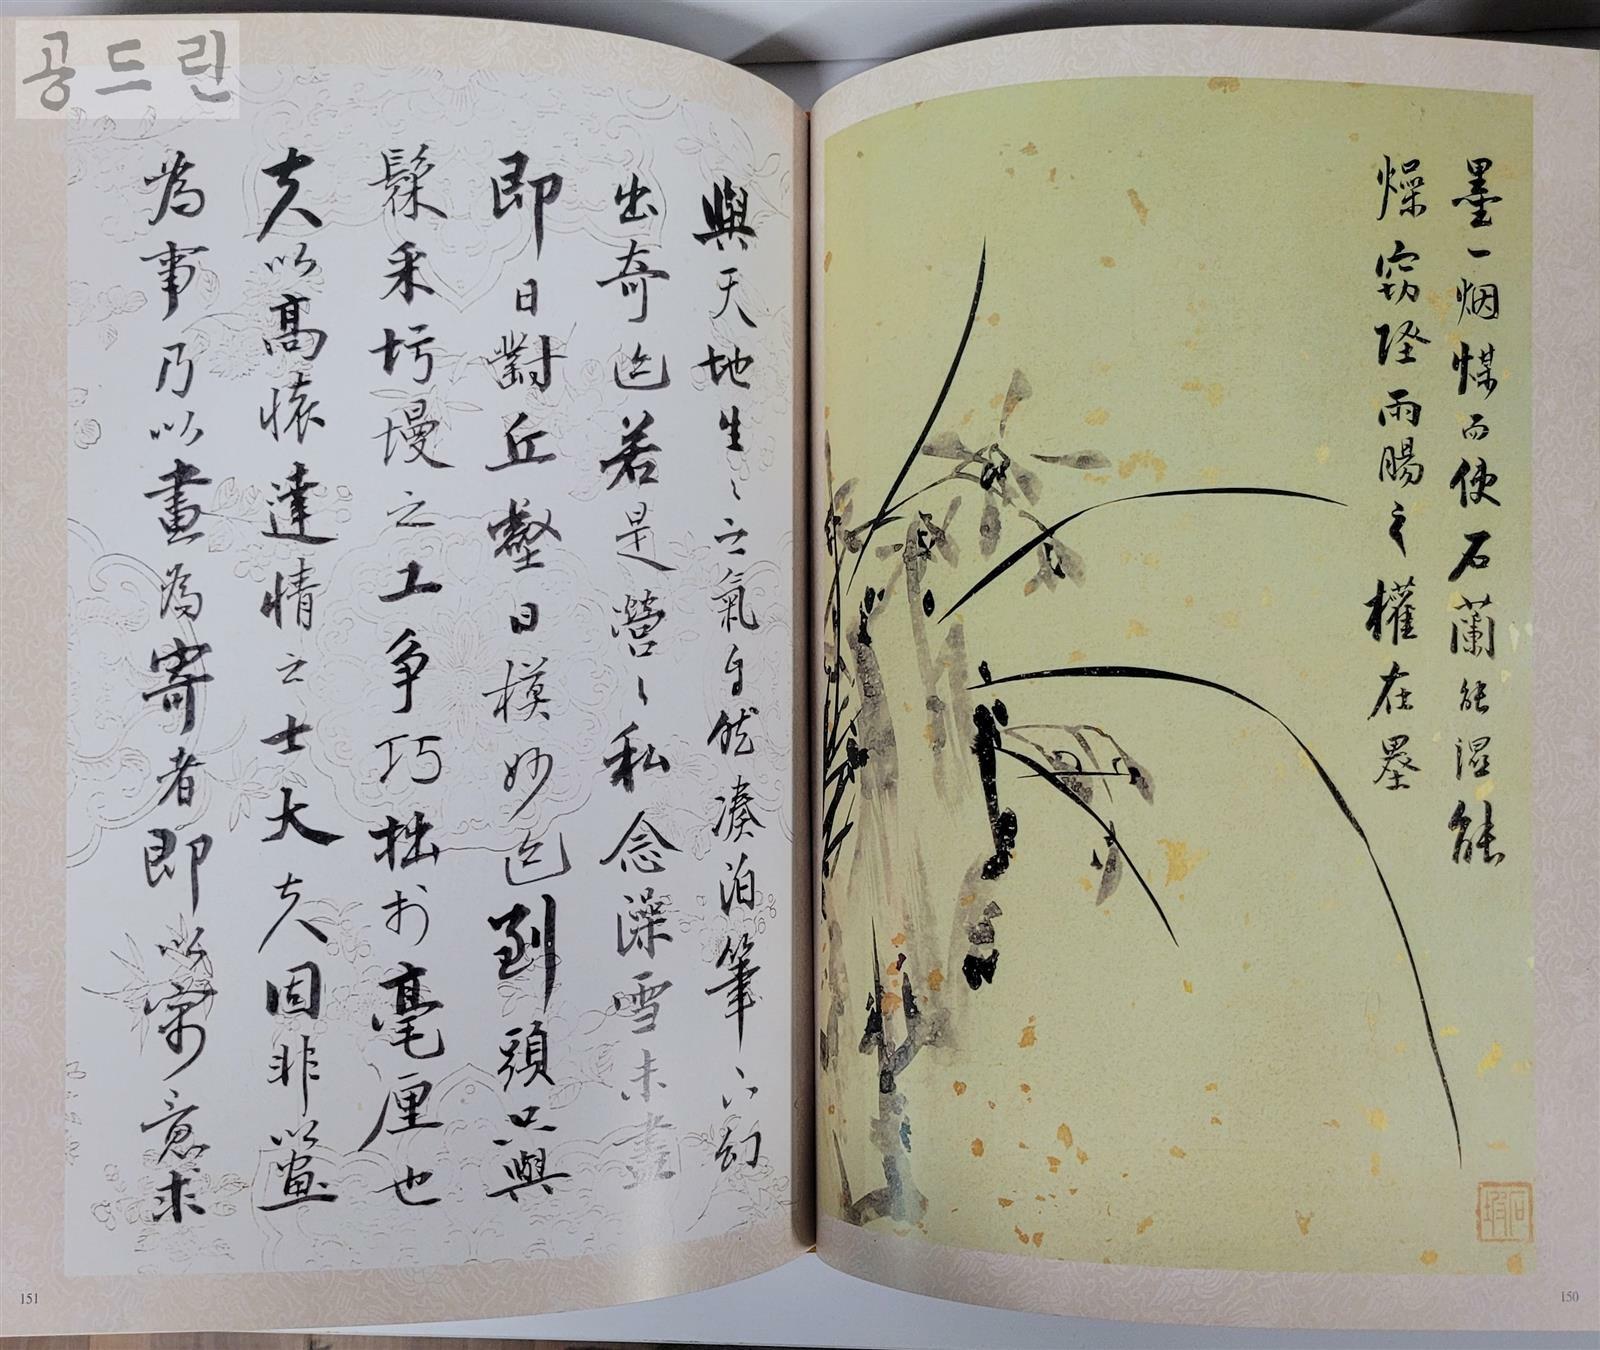 공드린
墨一烟煤而使石蘭能溼能
燥竊陰雨暘之權在墨
與天地生生之氣自然湊泊筆下幻
出奇迄若是營營私念澡雪未盡
即日對丘壑日模妙迄到頭只與
髹采圬墁之工爭巧拙於毫厘也
夫以高懷達情之士大夫因非以畫
為事乃以畫為寄者即以寄意求
石
150
151